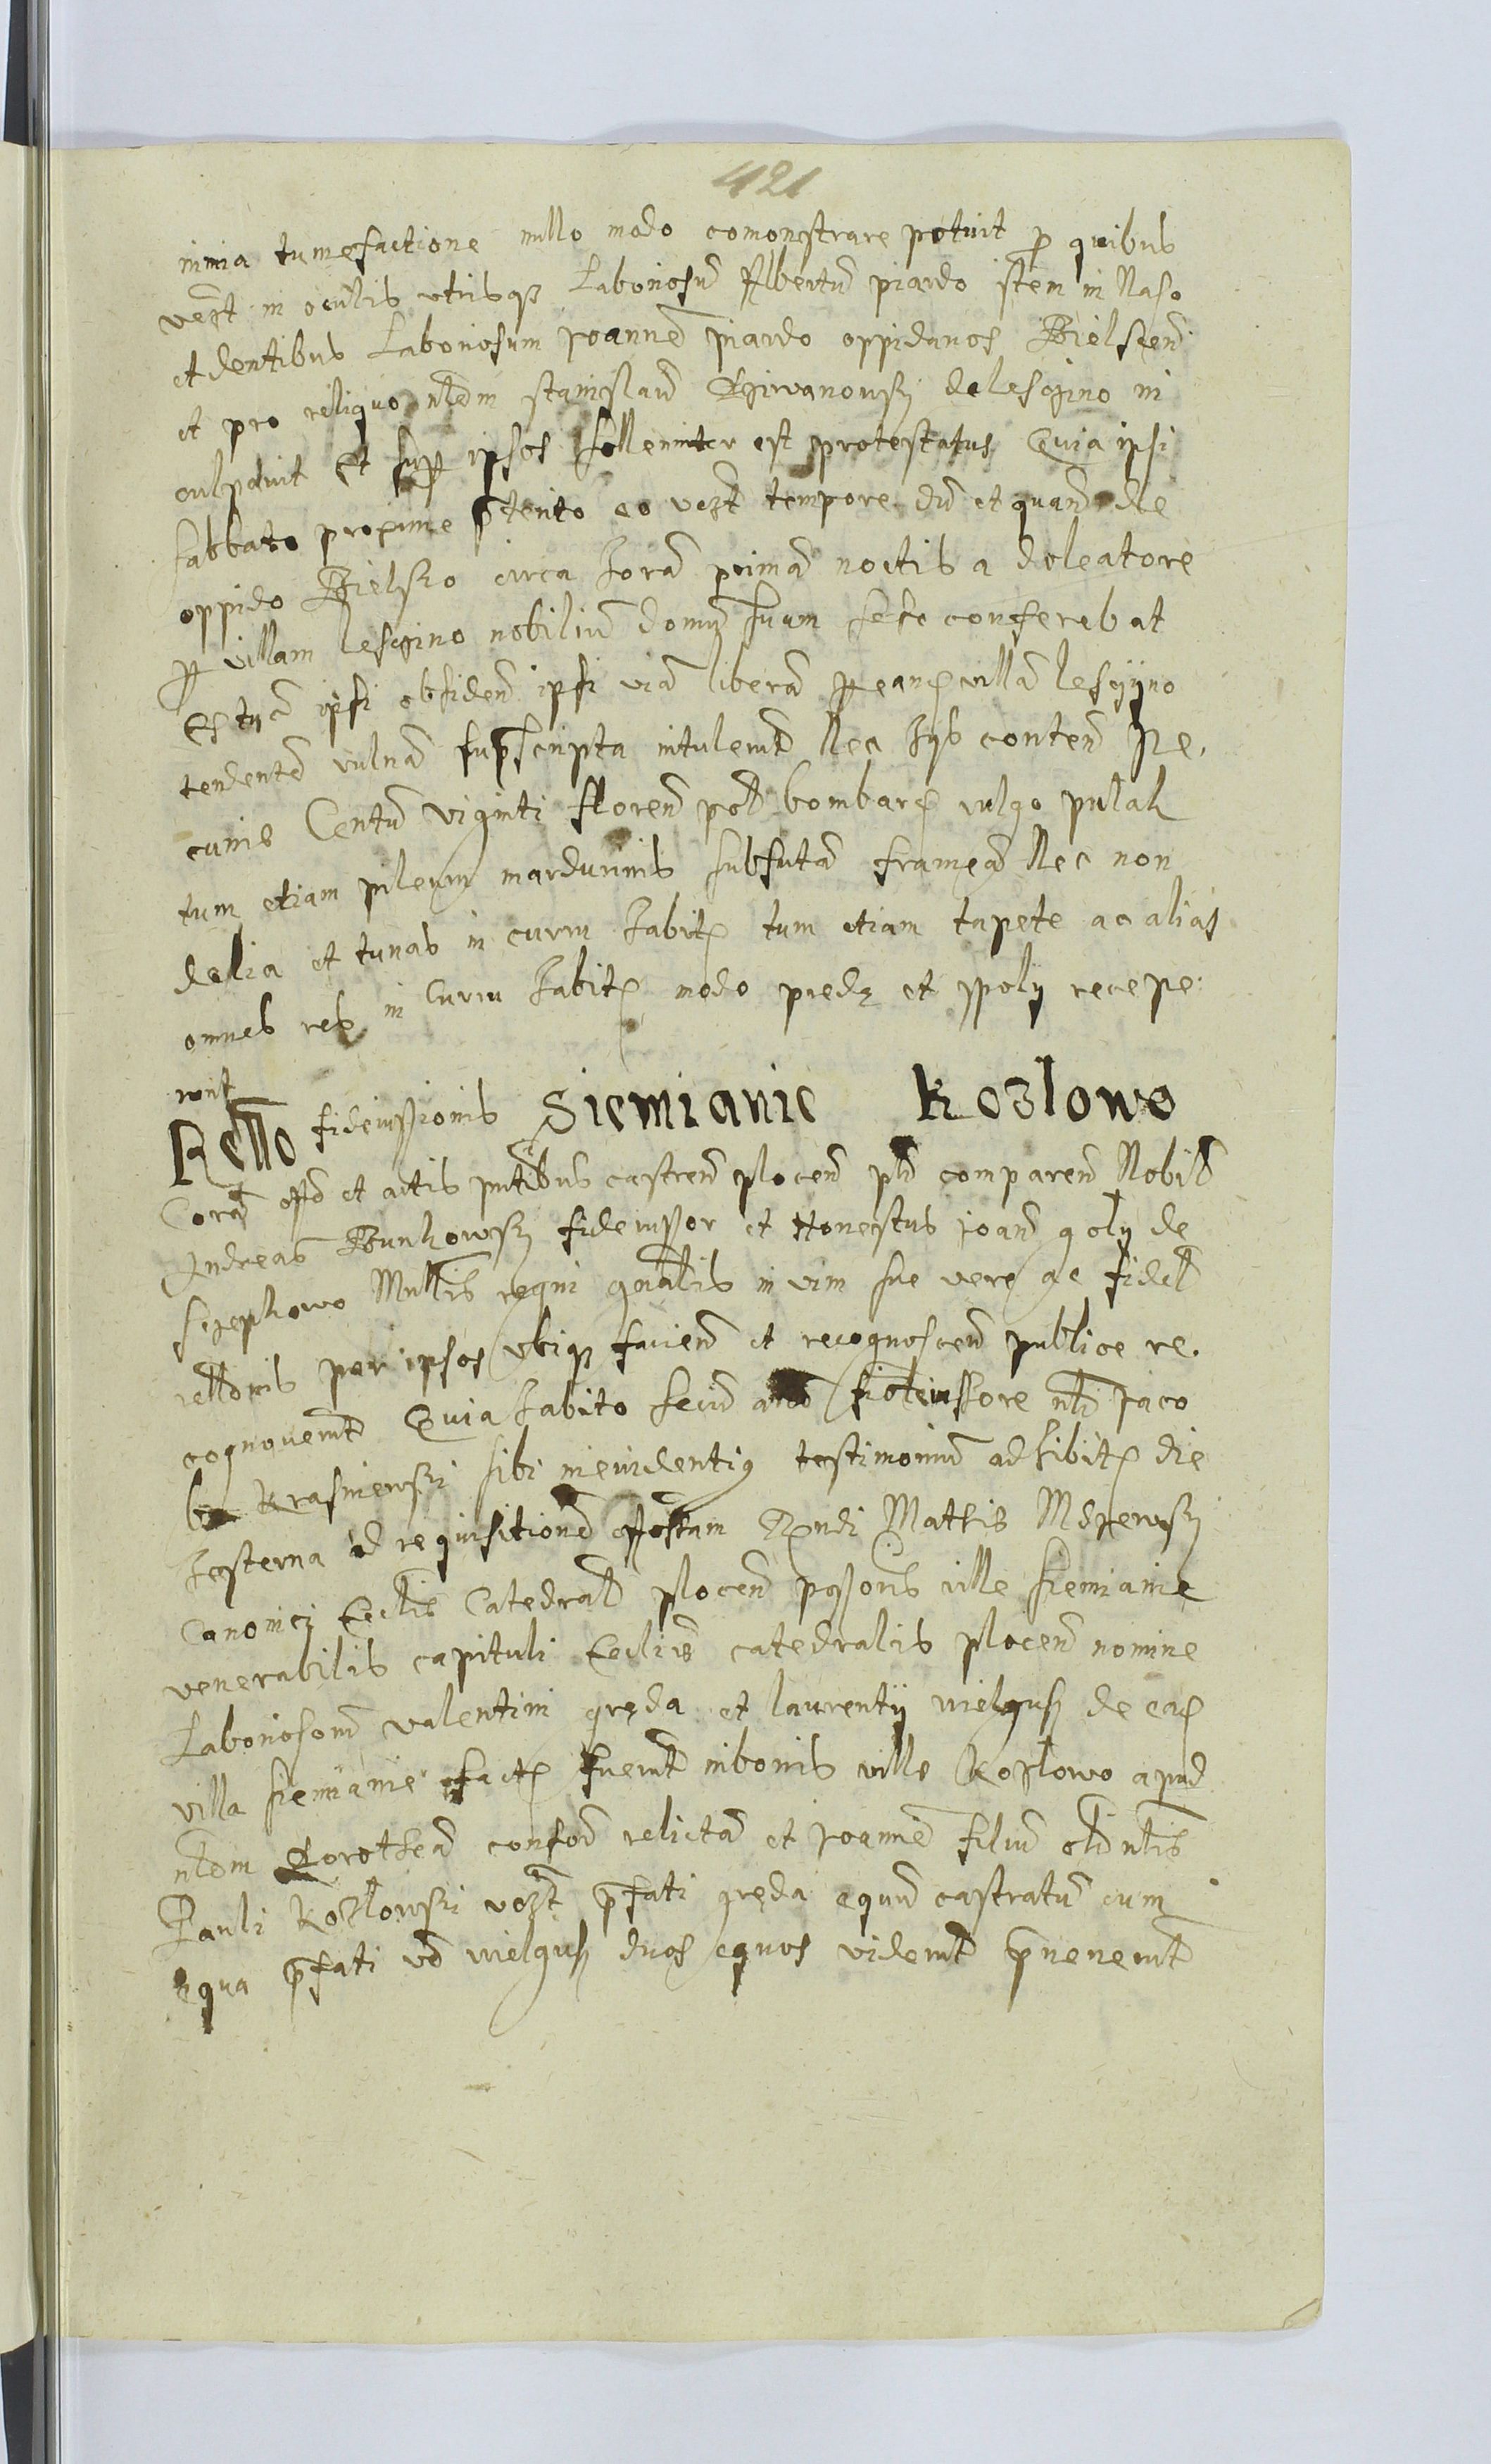 421
nimia tumefactione nullo modo comonstrare potuit p quibus
vezt in oculis utrisqz Laboriosu Albertu piardo item in Naso
et dentibus Laboriosum Joanne piardo oppidanos Bielscen
et pro reliquo nlem stanislau de lesczino in
culpavit Et supp ipsos sollenniter est protestatus Quia ipsi
sabbato proxime ptento eo vezt tempore du et quand de
oppido Bielsko circa horã primã noctis a doleatore
p villam lesczino nobiliu domu suum sese conferebat
Extunc ipsi obsiden ipsi viã liberã p eand villã lesczyno
tendente vulnã supscripta intulerut Nec hys conten pe.
cunis Centu viginti floren pol bombard vulgo pulak
tum etiam pileum mardurinis subfutã frameã Nec non
delia et tunas in curru habit tum etiam tapete ac alias
omnes res in Curru habit modo predę et spoly recepe
runt
Rello fideiussionis Siemianie Kozlowo
Corã offo et actis pntibus castren plocen pls comparen Nobil
Andreas Bunkowsky fideiussor et Honestus Joan goly de
Szepkowo Mnllis regni gnalis in vim sue vere ac fidel
rellonis per ipsos ubiqz facien et recognoscen publice re.
cognoverut Quia habito secu alio fideiussore nli Jaco
bo Krasniewski sibi in evidentiã testimoniu adhibit die
hesterna ad requisitione offosam Rndi Mathis Mdzewsky
Canonici Ecclis Catedral plocen pssoris ville siemianie
venerabilis capituli Ecclis catedralis plocen nomine
Laboriosoru valentini gręda et laurentij wielgusz de ead
villa siemianie fact fuerut in bonis ville Kozlowo apud
nlem Dorotheã consor relictã et Joanne filiu oli nlis
Pauli Kozlowski vezt pfati gręda equu castratu cum
equa pfati vo wielgusz duos equos viderut pvenerut